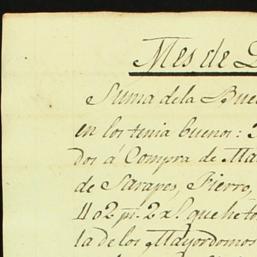 Mes de
Suma de la
en los tenia buenos:
dos á Compra de
de Sarapes, Fierro,
402 p.s 2 r.s que he
ta de los Mayordomos